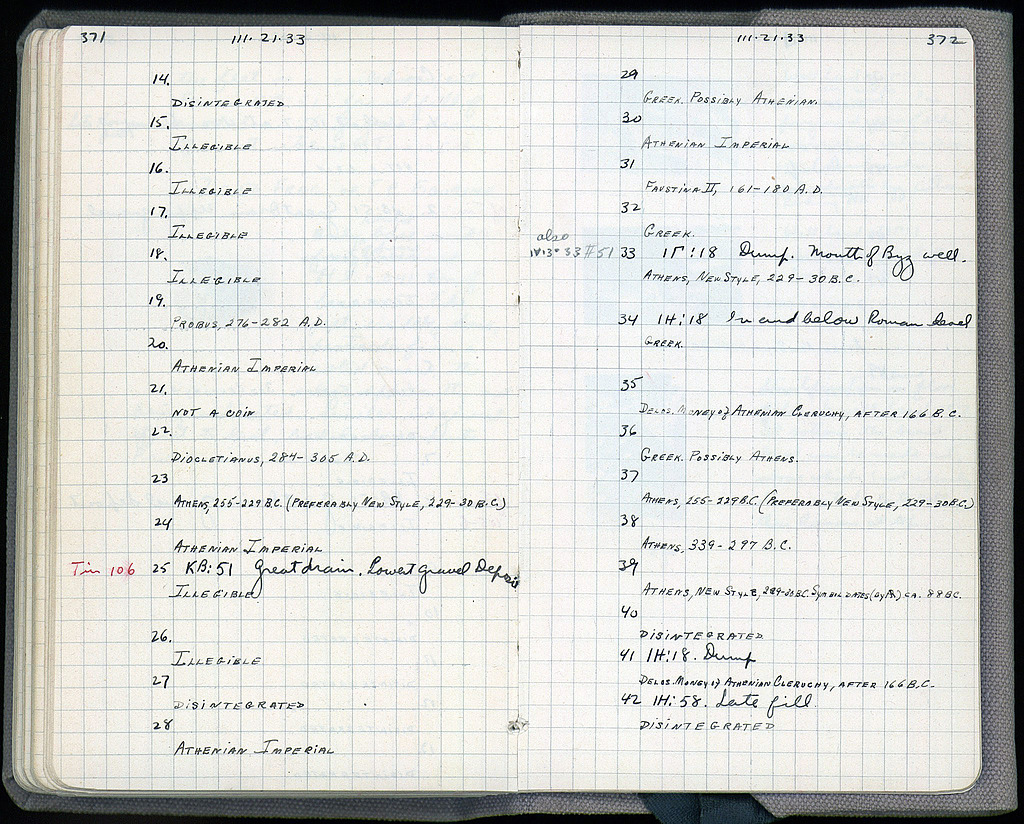 371
111·21·33
14.
DISINTEGRATED
15.
ILLEGIBLE
16.
ILLEGIBLE
17.
ILLEGIBLE
18.
ILLEGIBLE
19.
PROBUS, 276-282 A.D.
20.
ATHENIAN IMPERIAL
21.
NOT A COIN
22.
DIOCLETIANUS, 284-305 A.D.
23
ATHENS, 255-229 B.C. (PREFERABLY NEW STYLE, 229-30 B.C.)
24
ATHENIAN IMPERIAL
Tin 106 25 KB:51 Great drain. Lowest gravel Deposit
ILLEGIBLE
26.
ILLEGIBLE
27
DISINTEGRATED
28
ATHENIAN IMPERIAL
111·21·33
372
29
GREEK. POSSIBLY ATHENIAN.
30
ATHENIAN IMPERIAL
31
FAUSTINA II, 161-180 A.D.
32
GREEK.
also
IV·3·33 #51 33 IΓ:18 Dump. Mouth of Byz well.
ATHENS, NEW STYLE, 229-30 B.C.
34 IH:18 In and below Roman level
GREEK.
35
DELOS. MONEY of ATHENIAN CLERUCHY, AFTER 166 B.C.
36
GREEK. POSSIBLY ATHENS.
37
ATHENS, 255-229 B.C. (PREFERABLY NEW STYLE, 229-30 B.C.)
38
ATHENS, 339-297 B.C.
39
ATHENS, NEW STYLE, 229-30 B.C. SYMBOL DATES CA. 88 B.C.
40
DISINTEGRATED
41 IH:18. Dump
DELOS. MONEY of ATHENIAN CLERUCHY, AFTER 166 B.C.
42 IH:58. Late fill.
DISINTEGRATED